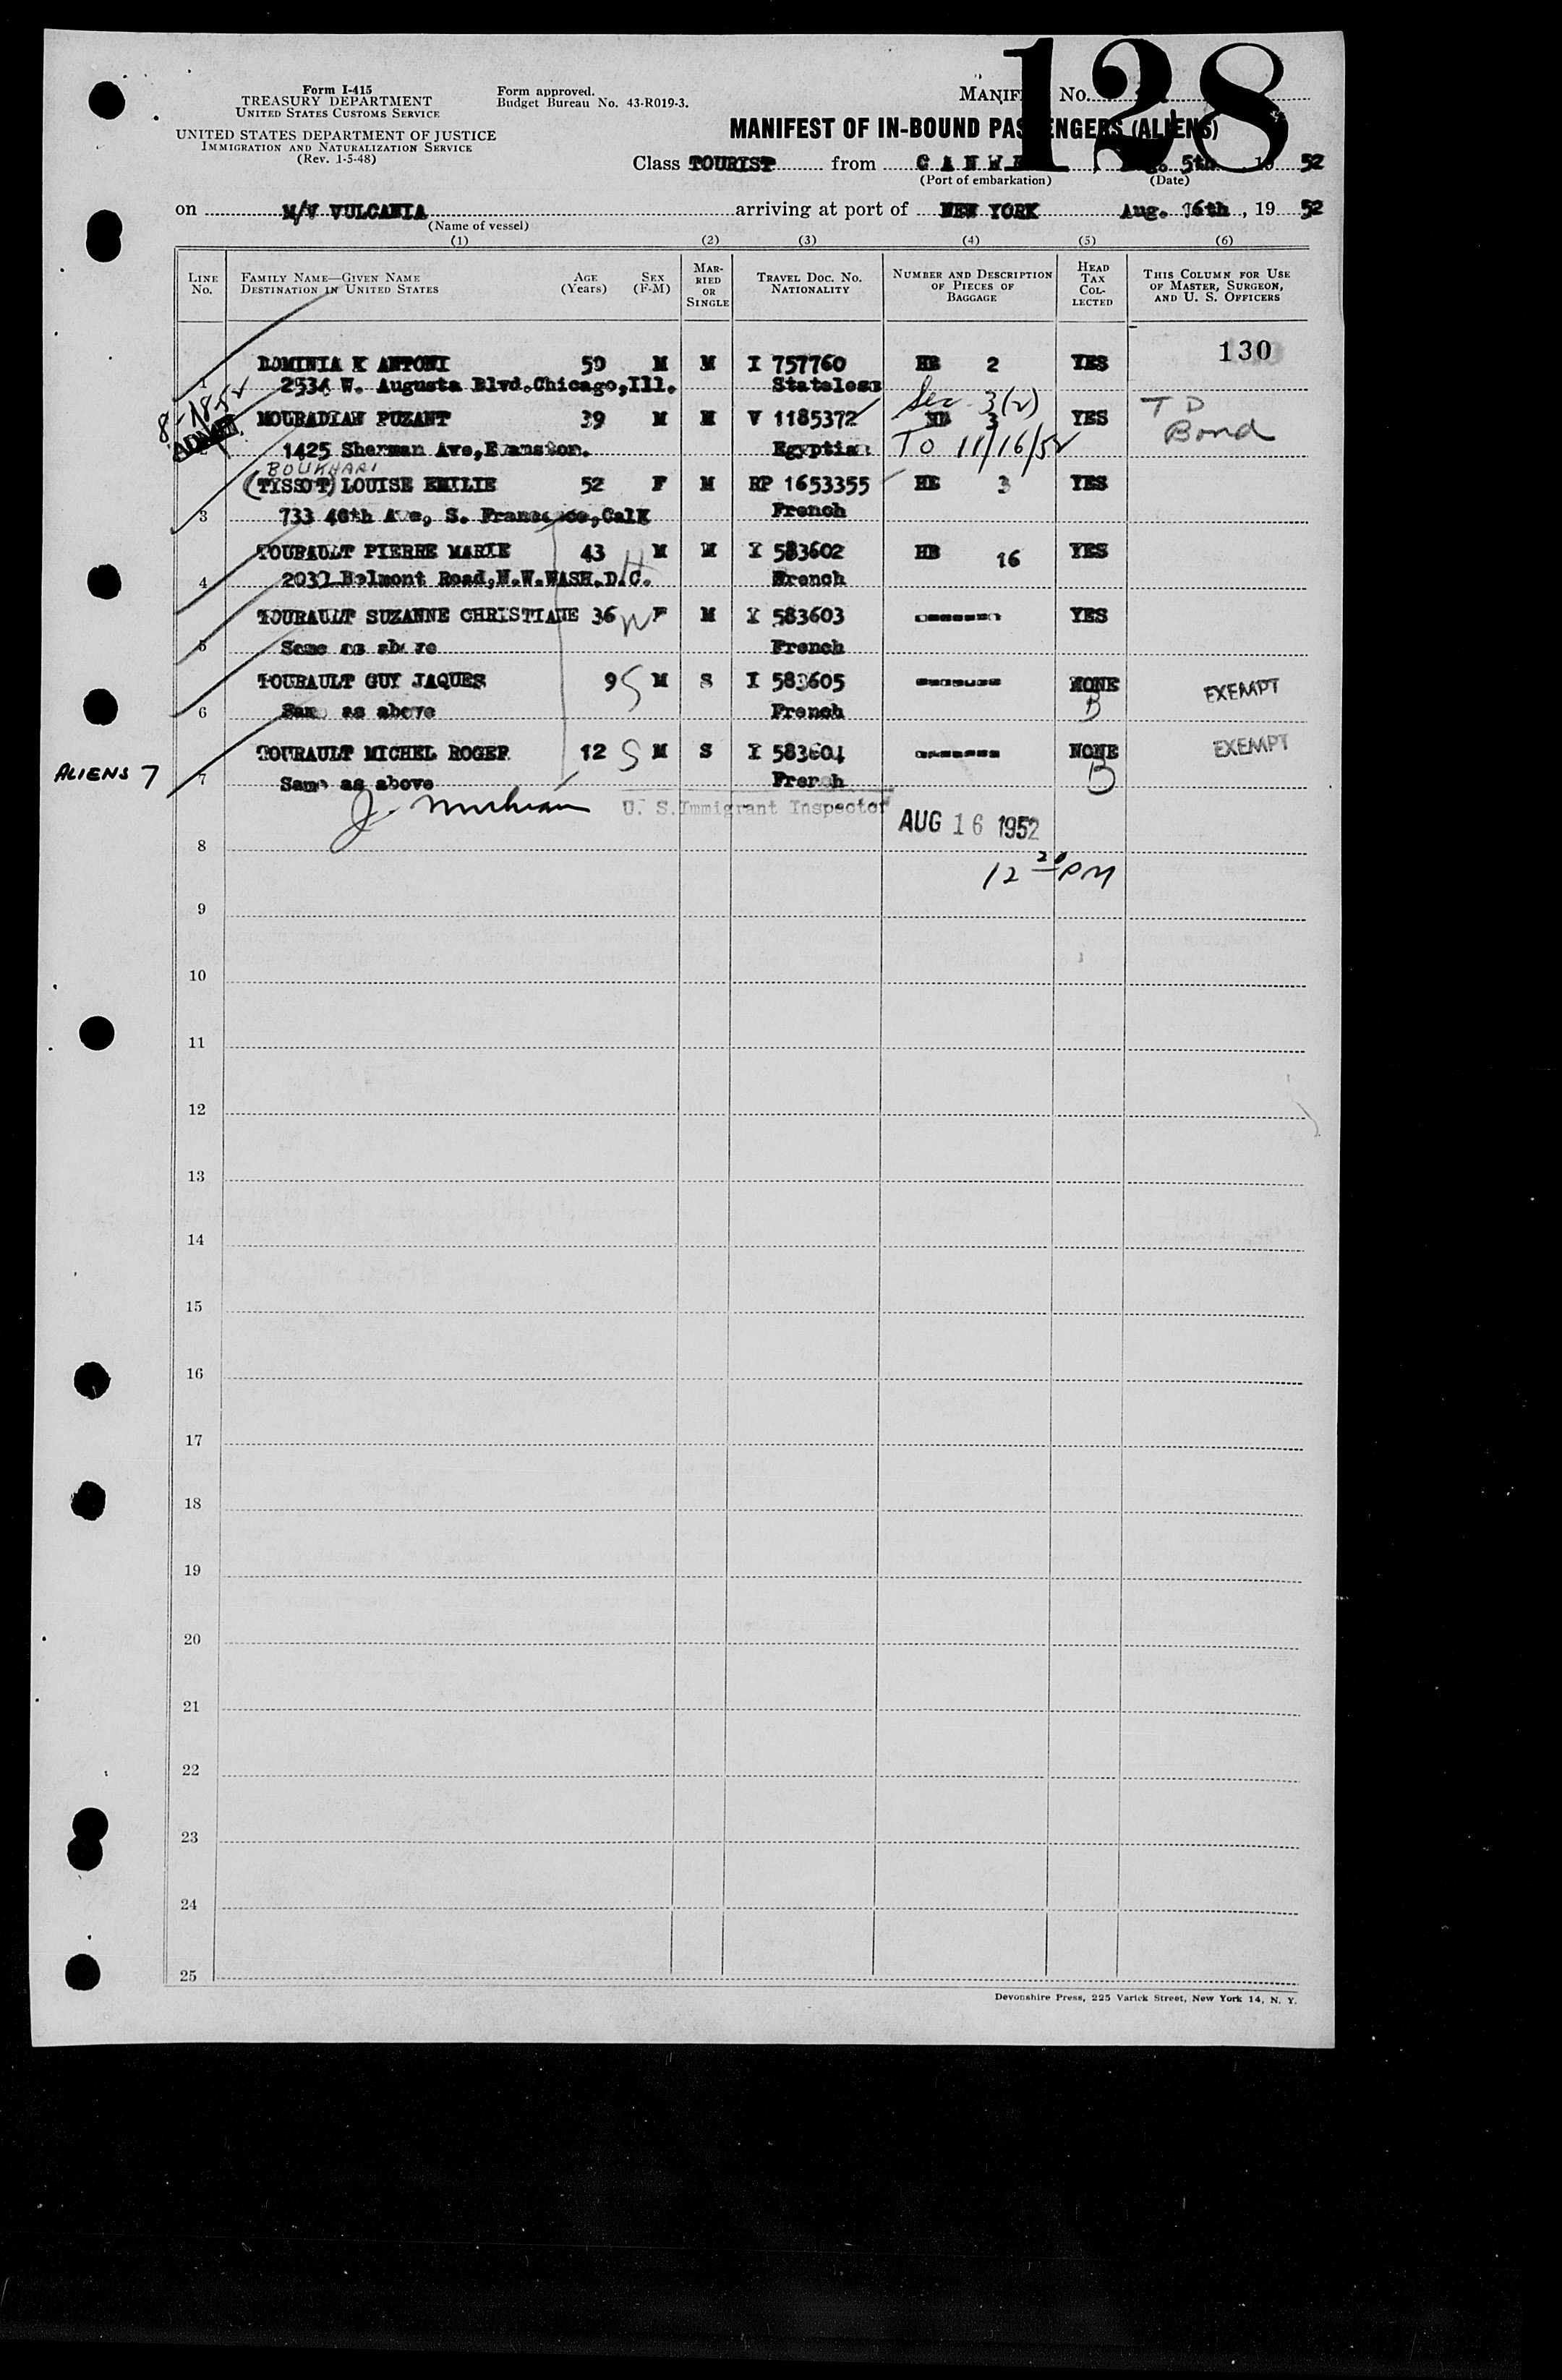 128
Form I-415
TREASURY DEPARTMENT
UNITED STATES CUSTOMS SERVICE
UNITED STATES DEPARTMENT OF JUSTICE
IMMIGRATION AND NATURALIZATION SERVICE
(Rev. 1-5-48)
Form approved.
Budget Bureau No. 43-R019-3.
MANIFEST No.
MANIFEST OF IN-BOUND PASSENGERS (ALIENS)
Class TOURIST from 5th 19 52
(Port of embarkation) (Date)
on M/V VULCANIA arriving at port of NEW YORK Aug. 16th, 19 52
(Name of vessel)
(1) (2) (3) (4) (5) (6)
LINE No. FAMILY NAME—GIVEN NAME DESTINATION IN UNITED STATES AGE (Years) SEX (F-M) MARRIED OR SINGLE TRAVEL DOC. No. NATIONALITY NUMBER AND DESCRIPTION OF PIECES OF BAGGAGE HEAD TAX COLLECTED THIS COLUMN FOR USE OF MASTER, SURGEON, AND U. S. OFFICERS
130
ANTONI 59 M M I 757760 HB 2 YES
1 W. Augusta Blvd.Chicago,Ill. Stateless
8-18-52
ADMIT.
MOURADIAN PUZANT 39 M M V 1185372 Sec 3(2) HB 3 YES T D
1425 Sherman Ave,Evanston. Egyptian TO 11/16/52 Bond
BOUKHARI
(TISSOT) LOUISE EMILIE 52 F M RP 1653355 HB 3 YES
3 733 46th Ave, S. Francisco, French
TOURAULT PIERRE MARIE 43 H M M I 583602 HB 16 YES
4 Belmont Road,N.W.WASH.D.C. French
TOURAULT SUZANNE CHRISTIANE 36 W F M I 583603 ------- YES
5 Same as above French
TOURAULT GUY JAQUES 9 S M S I 583605 ------- NONE EXEMPT
6 Same as above French B
ALIENS 7
TOURAULT MICHEL ROGER 12 S M S I 583604 ------- NONE EXEMPT
7 Same as above French B
U. S. Immigrant Inspector
AUG 16 1952
8
12 20 PM
9
10
11
12
13
14
15
16
17
18
19
20
21
22
23
24
25
Devonshire Press, 225 Varick Street, New York 14, N. Y.